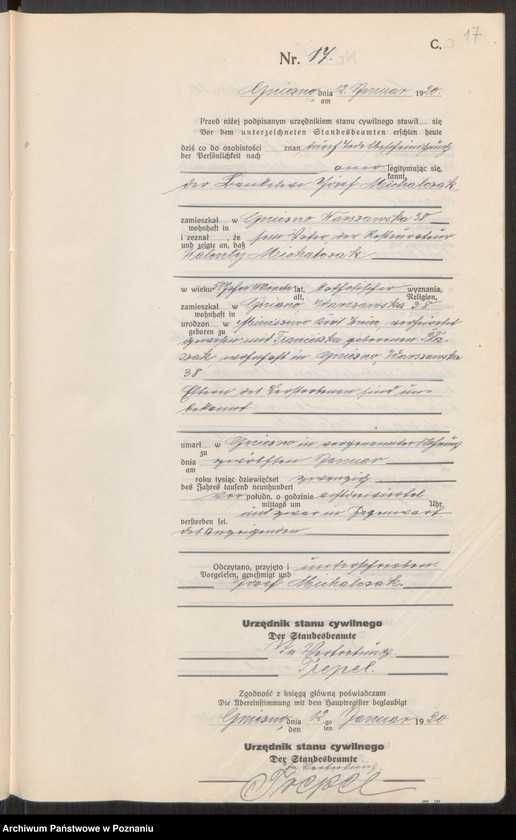 17
C.
Nr. 17.
Gniezno, dnia am 12. Januar 1920.
Przed niżej podpisanym urzędnikiem stanu cywilnego stawił się
Vor dem unterzeichneten Standesbeamten erschien heute
dziś co do osobistości znan durch
der Persönlichkeit nach
legitymując się,
kannt,
der Josef Michalczak
zamieszkał w Gniezno Warszawska 38
wohnhaft in
i zeznał, że sein Vater der Restaurateur
und zeigte an, daß
Valenty Michalczak
w wieku Jahre Monate lat, katholischer wyznania,
alt, Religion,
zamieszkał w Gniezno, Warszawska 38
wohnhaft in
urodzon w Kreis Znin, verheiratet
geboren zu
gewesen mit Franciszka geborenen
wohnhaft in Gniezno, Warszawska
38
Eltern des Verstorbenen sind un-
bekannt
umarł w Gniezno in vorgenannter Wohnung
zu
dnia zwölften Januar
am
roku tysiąc dziewięćset zwanzig
des Jahres tausend neunhundert
vor połudn. o godzinie
mittags um Uhr,
und zwar in Gegenwart
verstorben sei.
des Anzeigenden
Odczytano, przyjęto i unterschrieben.
Vorgelesen, genehmigt und
Josef Michalczak.
Urzędnik stanu cywilnego
Der Standesbeamte
In Vertretung
Trepel.
Zgodność z księgą główną poświadczam
Die Übereinstimmung mit dem Hauptregister beglaubigt
Gniezno, dnia 12-go Januar 1920
den ten
Urzędnik stanu cywilnego
Der Standesbeamte
In Vertretung
Trepel
Archiwum Państwowe w Poznaniu